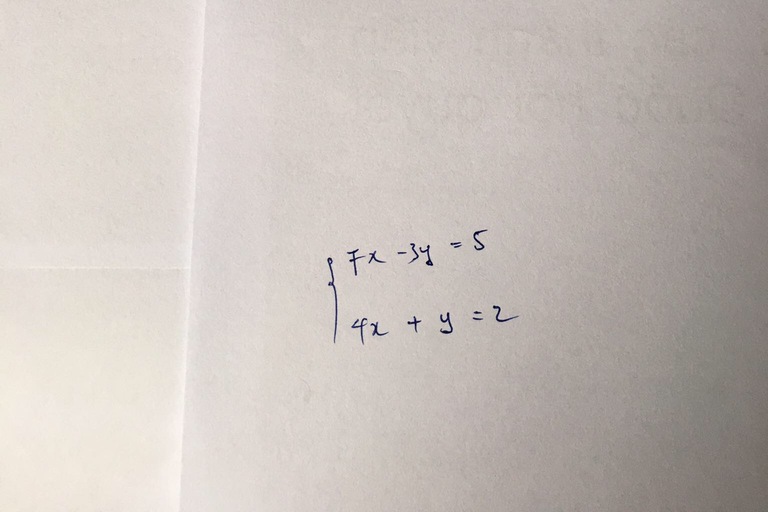 7x - 3y = 5
4x + y = 2